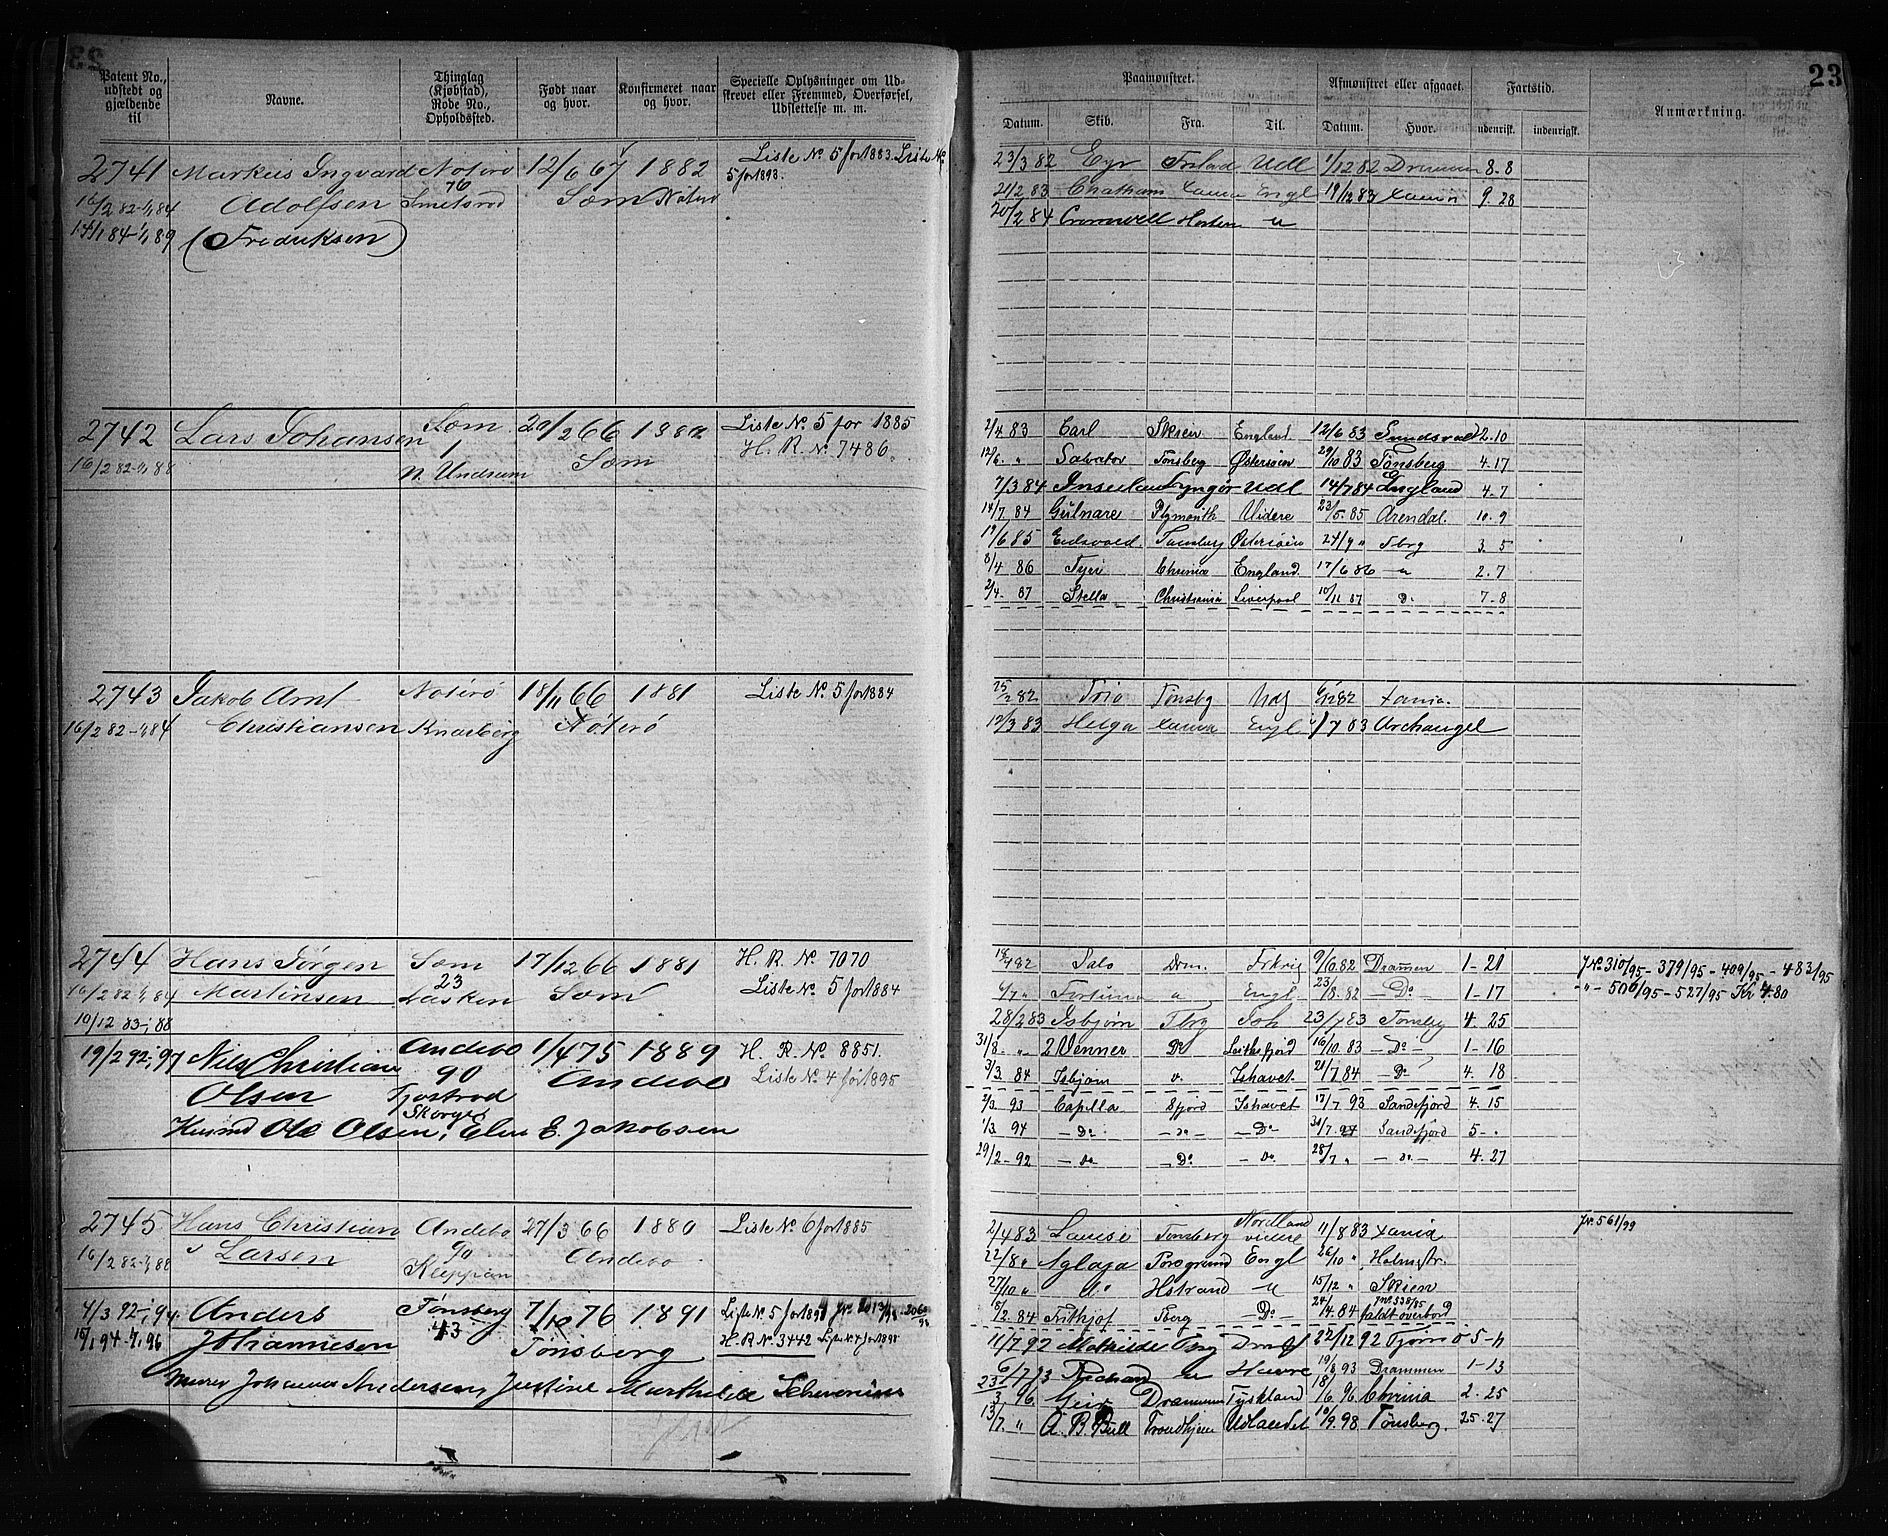 23
Patent No., udstedt og gjældende til
Navne.
Thinglag (Kjøbstad), Rode No., Opholdssted.
Født naar og hvor.
Konfirmeret naar og hvor.
Specielle Oplysninger om Udskrevet eller Fremmed, Overførsel, Udslettelse m. m.
2741 Markus Ingvard Nøterø 12/6 67 1882 Liste No 5 for 1883. Liste No
76 5 for 1893.
16/2 82-1/1 84 Adolfsen Smidsrød Sæm Nøterø
14/1 84-1/1 89 (Fredriksen)
2742 Lars Johansen Sæm 20/2 66 1882 Liste No 5 for 1885
1 H. R. No 7486.
16/2 82-1/1 88 N. Undrum Sæm
2743 Jakob Arnt Nøterø 18/11 66 1881 Liste No 5 for 1884
16/2 82-1/1 84 Christiansen Knarberg Nøterø
2744 Hans Jørgen Sæm 17/12 66 1881 H. R. No 7070
23
16/2 82-1/1 84 Martinsen Læsken Sæm Liste No 5 for 1884
10/12 83-1/1 88
19/2 92-1/1 97 Nils Christian Andebo 1/4 75 1889 H. R. No 8851.
90 Andebo Liste No 4 for 1895
Olsen
Husmd Ole Olsen, Elen E. Jakobsen
2745 Hans Christian Andebo 27/3 66 1880 Liste No 6 for 1885
16/2 82-1/1 88 Larsen 90 Andebo
4/3 92-1/1 94 Anders Tønsberg 7/10 76 1891
15/1 94-1/1 96 Johannesen 43 Tønsberg H. R. No 3442
Murer Johannes Andersen, Justine Mathilde
23
Paamønstret.
Afmønstret eller afgaaet.
Fartstid.
Anmærkning.
Datum. Skib. Fra. Til. Datum. Hvor. udenrisk. indenrigsk.
23/3 82 Eyr Udl 1/12 82 Drammen 8.8
21/2 83 Chatham Xania Engl 19/12 83 Xania 9.28
20/2 84 Cromwell Horten "
2/4 83 Earl Skien England 12/6 83 Sundsvald 2.10
12/6. " Salvator Tønsberg Østersøen 29/10 83 Tønsberg 4.17
7/3 84 Lyngør Udl 14/7 84 England 4-7
14/7 84 Gulnare Plymouth Videre 23/5. 85 Arendal. 10.9
19/6 85 Eidsvold Tønsberg Østersøen 24/9 " Tbrg 3.5
8/4 86 Chrinia England 17/6 86 " 2.7
2/4. 87 Stella Christiania Liverpool 10/11 87 Do 7-8
25/2 82 Trio Tønsbg Udl Xania.
12/3 83 Helga Xania Engl 1/7 83 Archangel
18/4 82 Salo Drm. 9/6 82 Drammen 1-21 J.No. 310/95 - 379/95 - 409/95 - 483/95
6/7 " Fortuna " Engl 23/8. 82 - Do 1-17 -"- 506/95 - 527/95 Kr 4.80
28/2 83 Isbjørn Tbrg 23/7 83 Tønsbg 4.25
31/8. " 2 Venner Do 16/10. 83 -Do- 1-16
3/3. 84 Isbjørn Do Ishavet 21/7 84 -Do- 4.18
2/3. 93 Capella Sfjord Ishavet 17/7 93 Sandefjord 4.15
1/3. 94 -Do- -Do- -Do 31/7. 94 Sandefjord 5-.
29/2-92 -Do -Do -Do 28/7 " -do- 4.27
2/4 83 Louise Tønsberg Nordland videre 11/8 83 Xania J.No. 561/99
22/8 " Aglaja Porsgrund Engl 26/10 " Holmestr.
27/10 " Do Hstrand " 15/12 " Skien
15/2. 84 Frithjof Tberg Do 24/4. 84 J.No. 538/85 faldt overbord
11/7 92 Mathilde Tbrg Dram 22/12 92 Tjømø 5-11
6/7 93 Richard " Havre 19/8 93 Drammen 1-13
23/3 96 Geir Drammen Tyskland 18/6 96 Chrinia 2.25
13/7. " A. B. Bull Trondhjem Udlandet 10/9. 98 Tønsberg. 25.27